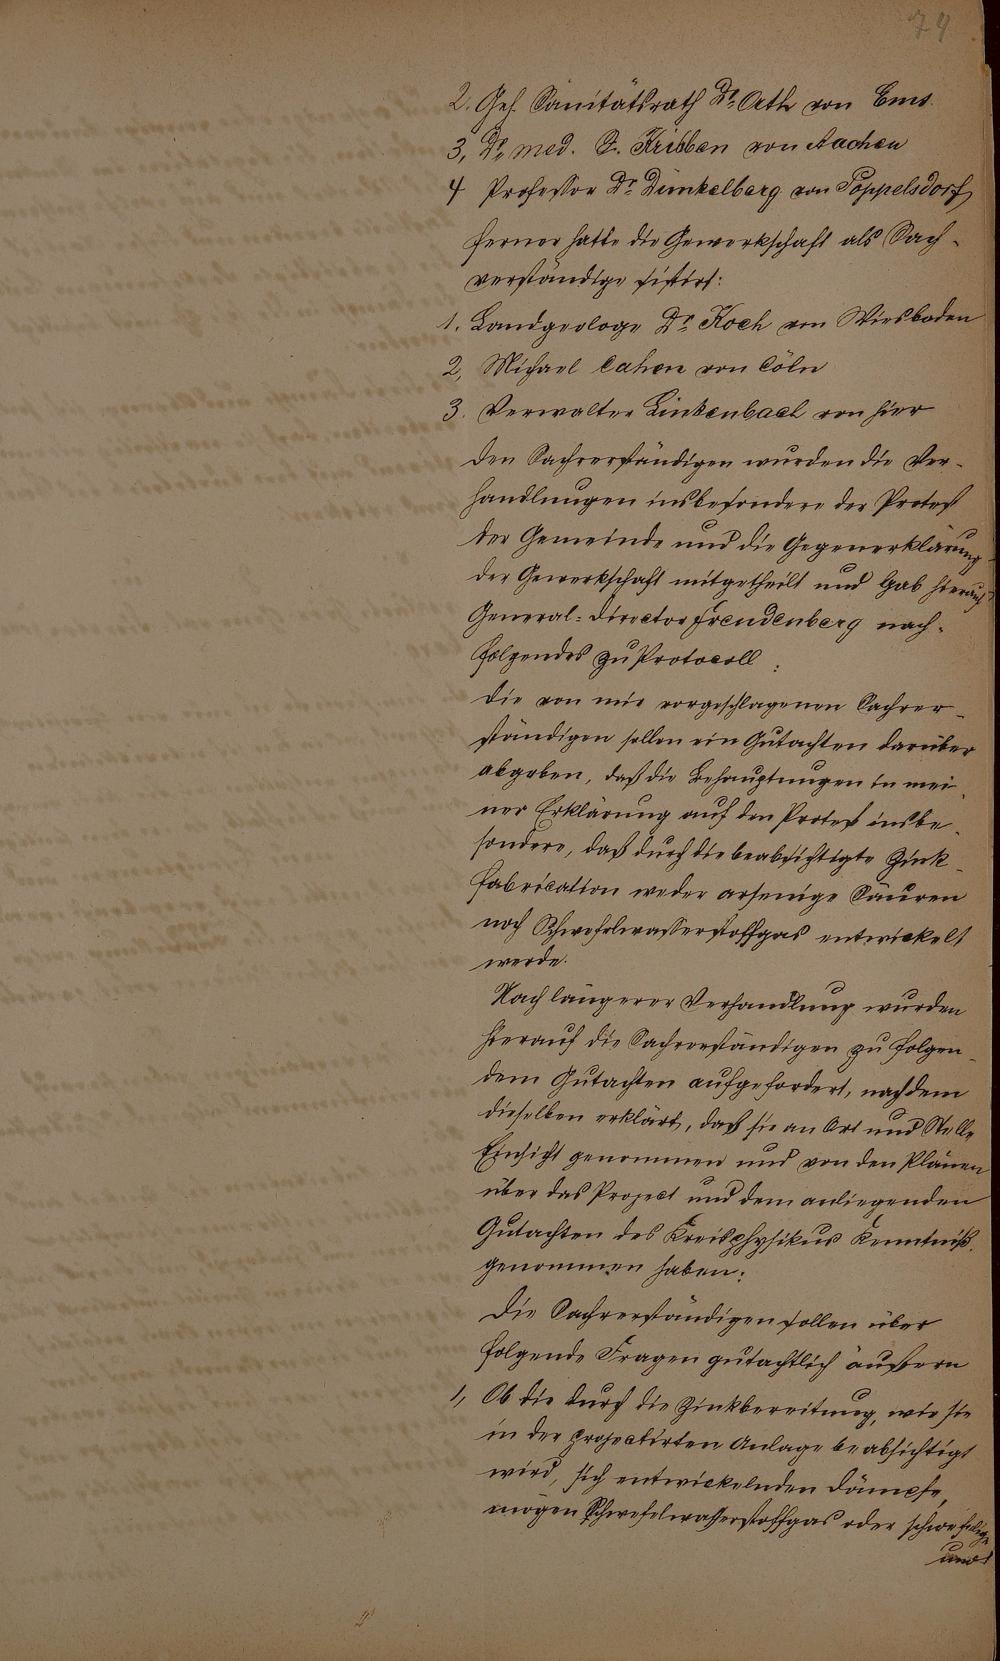 74
2. Geh. Sanitätsrath Dr. Orth von Ems.
3, Dr. med. L. Kribben von Aachen
4 Professor Dr. Dünkelberg von Poppelsdorf,
ferner hatte die Gewerkschaft als Sach-
verständige sistirt:
1. Landgeologe Dr. Koch von Wiesbaden
2, Michael Cahen von Cöln
3. Verwalter Linkenbach von hier
Den Sachverständigen wurden die Ver-
handlungen insbesondere der Protest
der Gemeinde und die Gegenerklärung
der Gewerkschaft mitgetheilt und gab hierauf
General-Director Freudenberg nach-
folgendes zu Protocoll:
Die von mir vorgeschlagenen Sachver-
ständigen sollen ein Gutachten darüber
abgeben, daß die Behauptungen in mei-
ner Erklärung auf den Protest insbe-
sondere, daß durch die beabsichtigte Zink-
fabrication weder arsenige Säuren
noch Schwefelwasserstoffgas entwickelt
werde.
Nach längerer Verhandlung wurden
hierauf die Sachverständigen zu folgen-
dem Gutachten aufgefordert, nachdem
dieselben erklärt, daß sie an Ort und Stelle
Einsicht genommen und von den Plänen
über das Project und dem anliegenden
Gutachten des Kreisphysikus Kenntniß
genommen haben:
Die Sachverständigen sollen über
folgende Fragen gutachtlich äußern
1, Ob die durch die Zinkbereitung, wie sie
in der projectirten Anlage beabsichtigt
wird, sich entwickelnden Dämpfe,
mögen Schwefelwasserstoffgas oder schwefelige
und